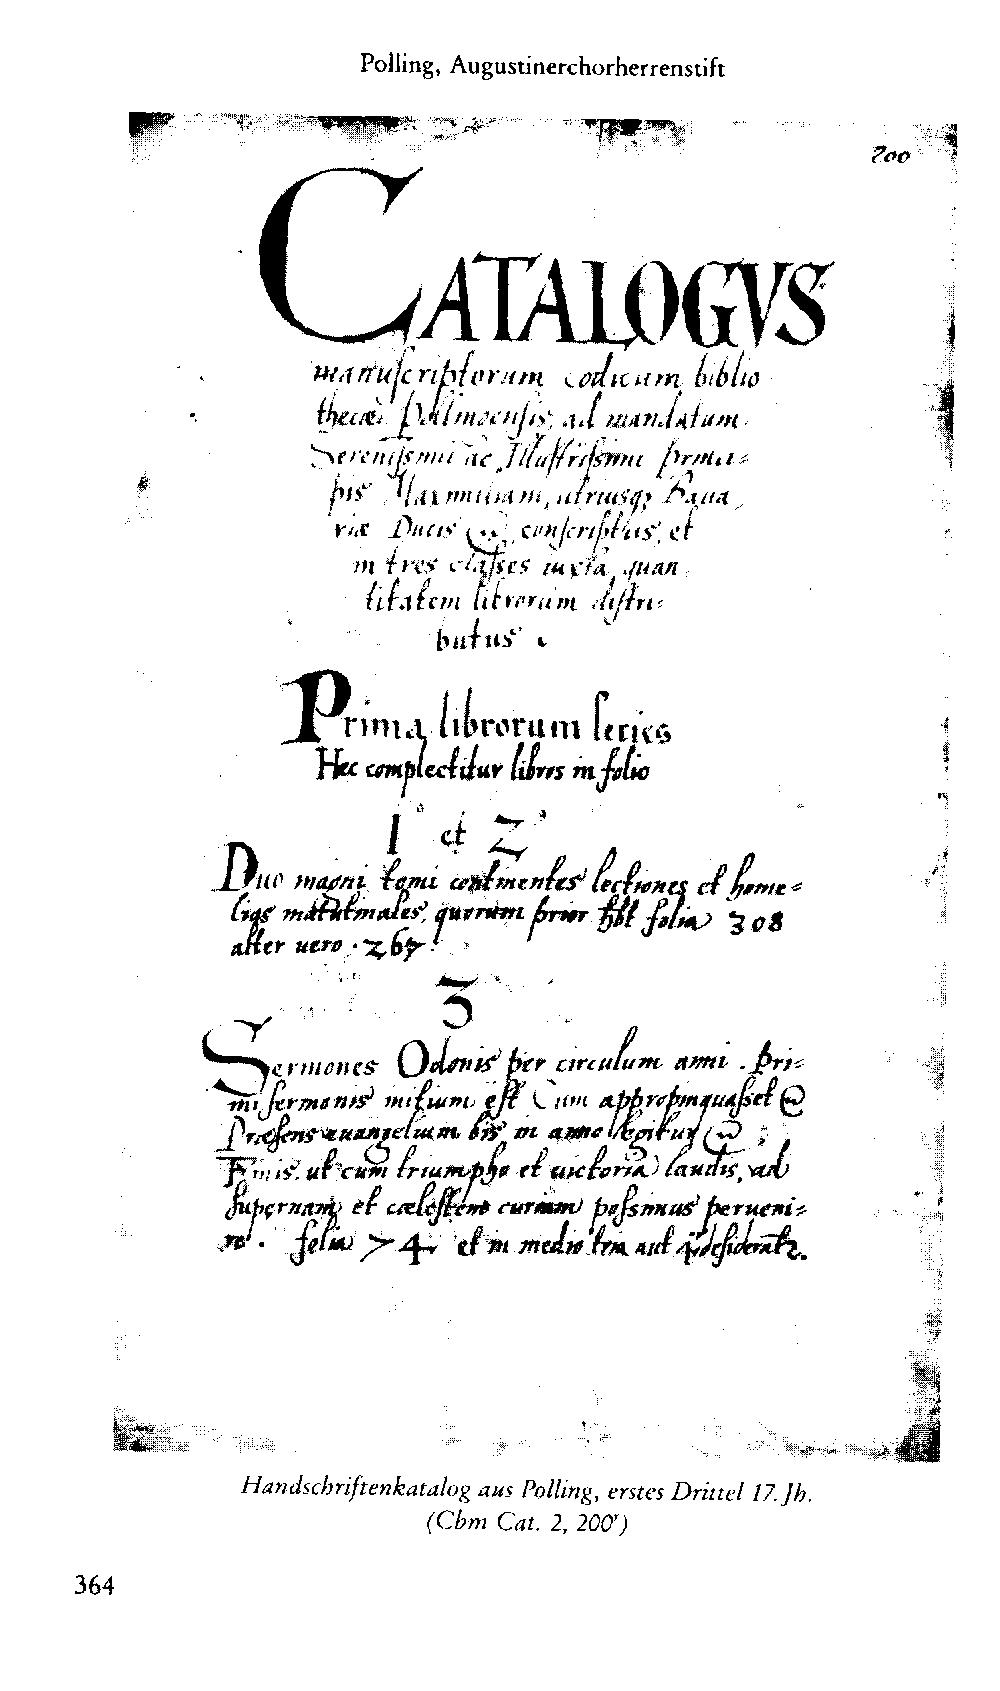 Polling, Augustinerchorherrenstift
200
CATALOGVS
manuscriptorum codicum biblio
thecæ Pollingensis, ad mandatum
Serenissimi ac Illustrissimi prin
pis Maximiliani, utriusq; Baua
riæ Ducis &c. conscriptus, et
in tres classes iuxta quan
titatem librorum distri=
butus
Prima librorum series
Hec complectitur libros in folio
1° et 2°
Duo magni tomi continentes lectiones et home=
lias matutinales, quorum prior hēt folia 308
alter uero . 267.
3
Sermones Odonis per circulum anni . Pri=
mi sermonis initium est Cum appropinquasset &
Præsens euangelium bis in anno legitur &c ;
Finis. ut cum triumpho et uictoria laudis, ad
supernam et cælestem curiam possimus perueni=
re . folia 74 et in medio tria aut 4 desiderātr.
Handschriftenkatalog aus Polling, erstes Drittel 17. Jh.
(Cbm Cat. 2, 200r)
364